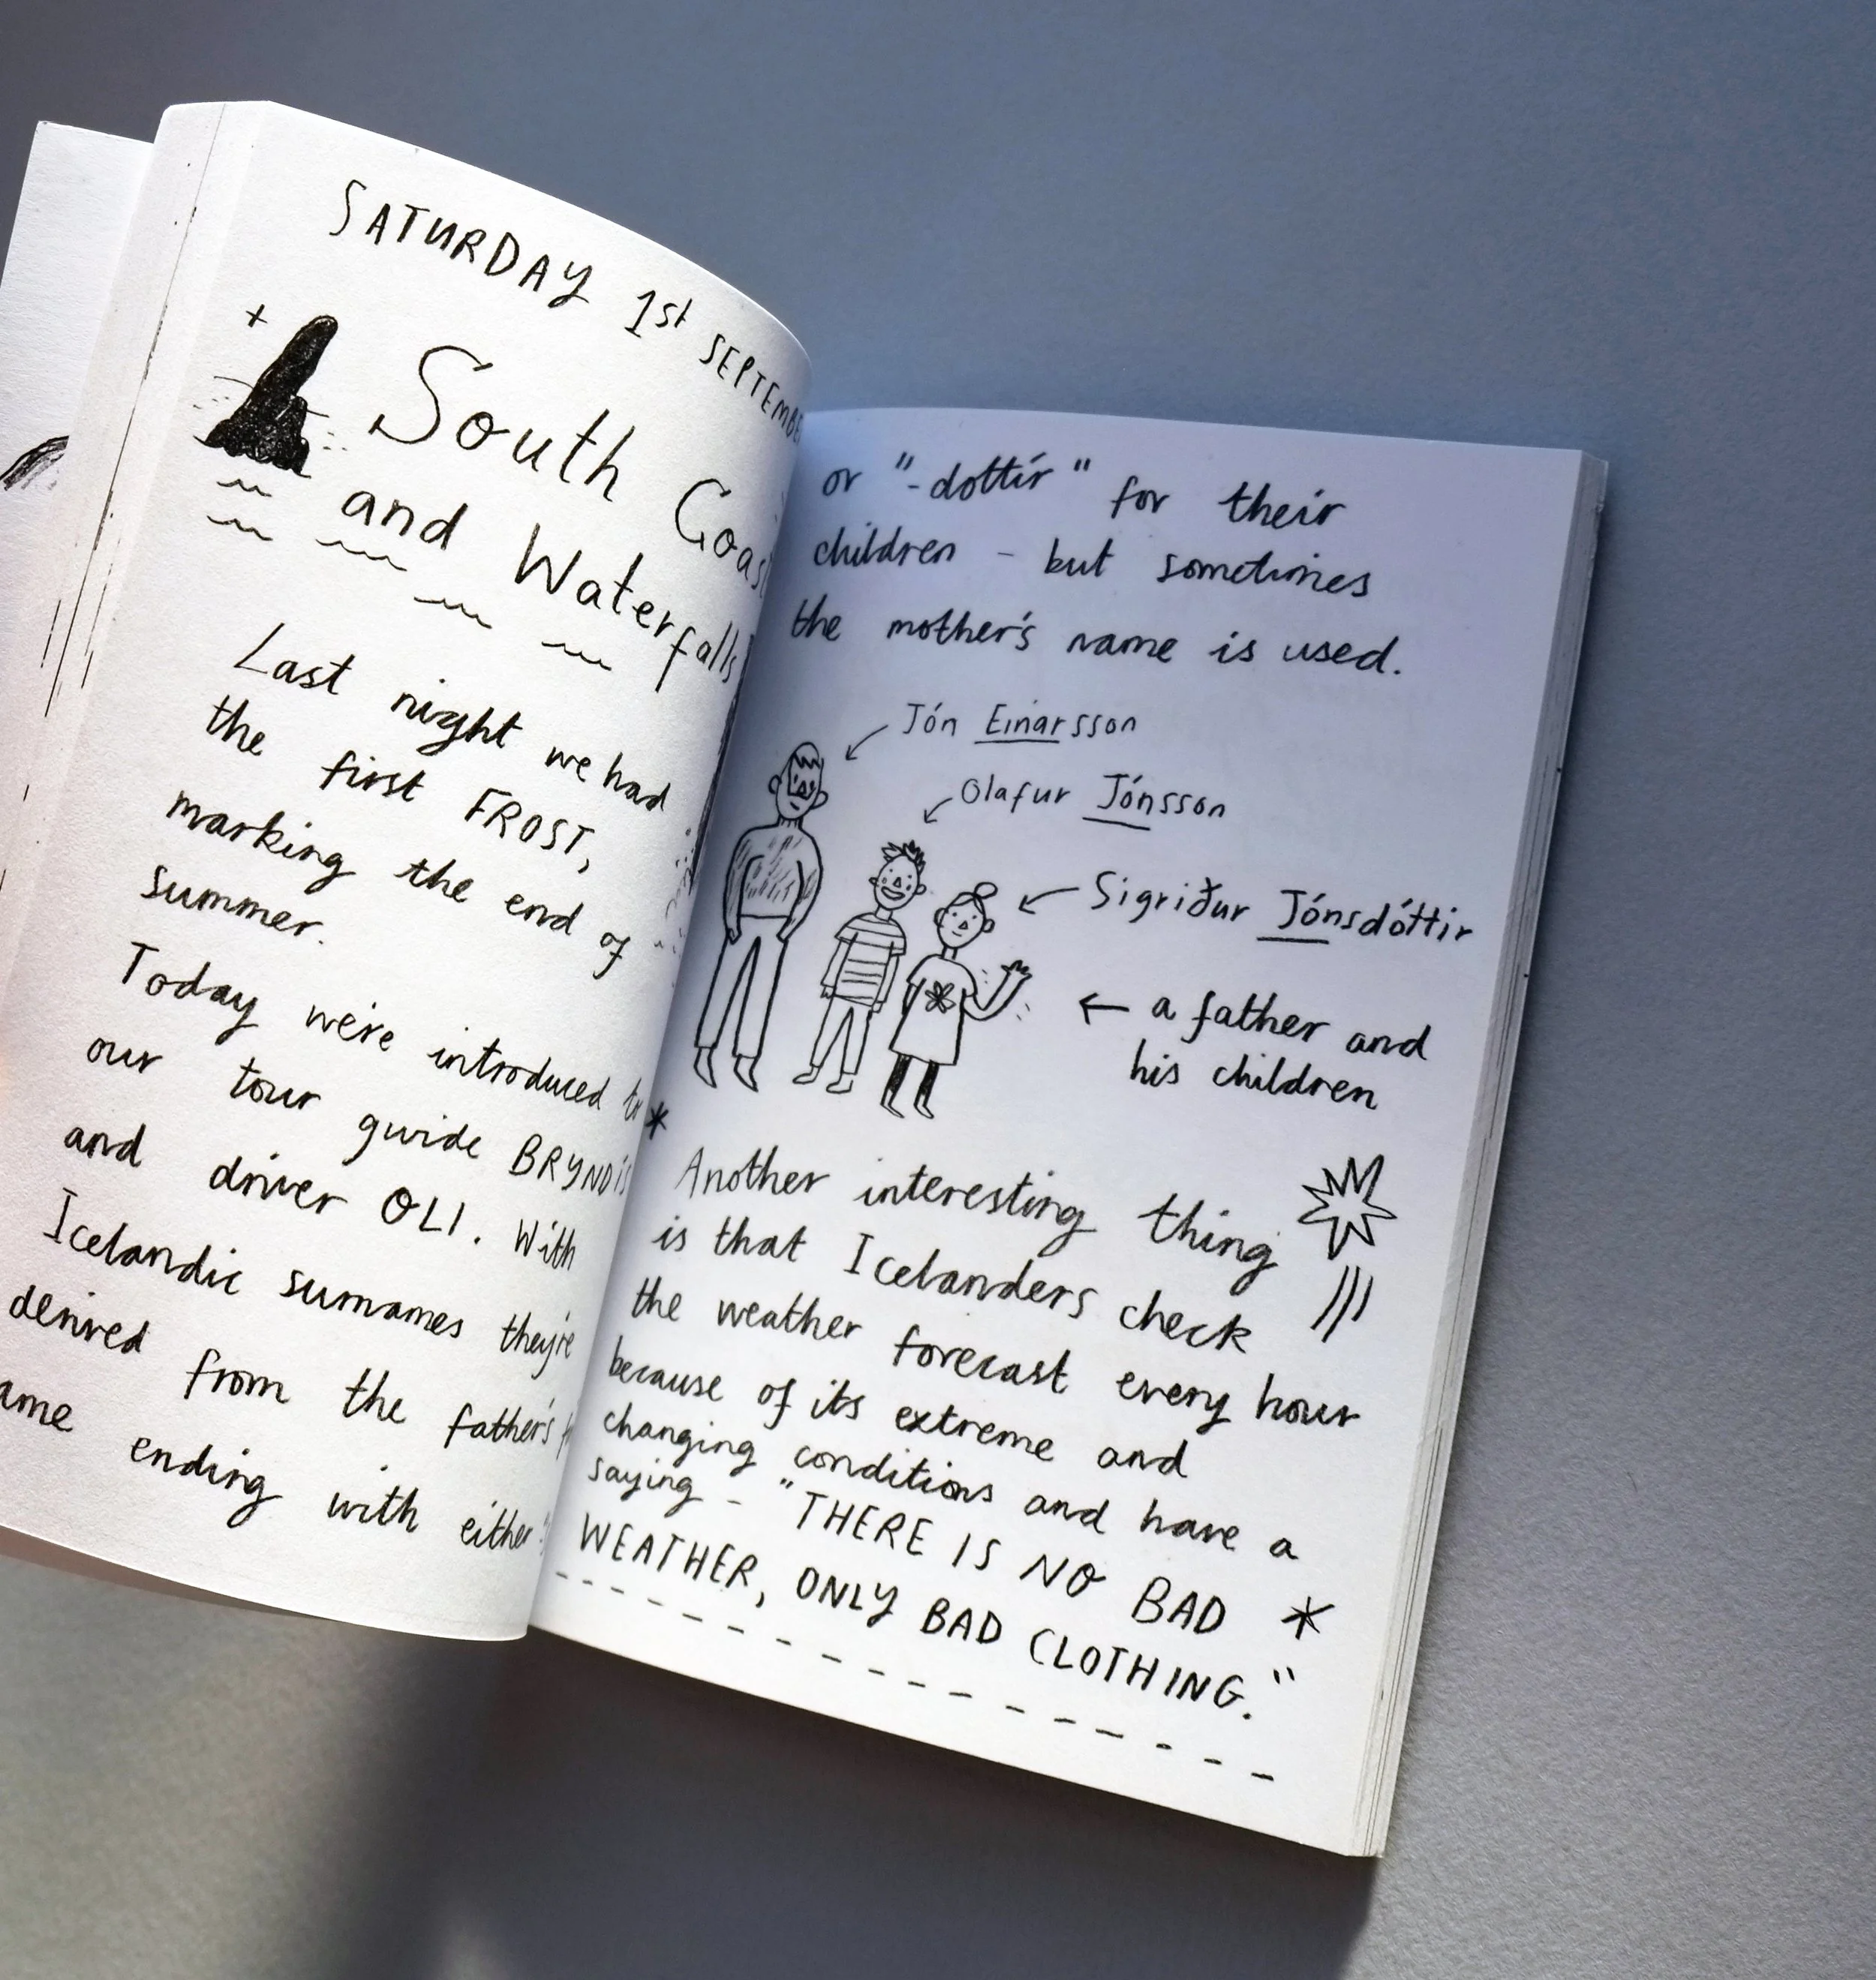 SATURDAY 1st SEPTEMBER
South Coast
and Waterfalls
Last night we had
the first FROST,
marking the end of
summer.
Today we're introduced to
our tour guide BRYNDIS
and driver OLI. With
Icelandic surnames they're
derived from the father's
ending with either
or "-dottír" for their
children - but sometimes
the mother's name is used.
Jón Einarsson
Olafur Jónsson
Sigriður Jónsdóttir
← a father and
his children
* Another interesting thing
is that Icelanders check
the weather forecast every hour
because of its extreme and
changing conditions and have a
saying - "THERE IS NO BAD *
WEATHER, ONLY BAD CLOTHING."